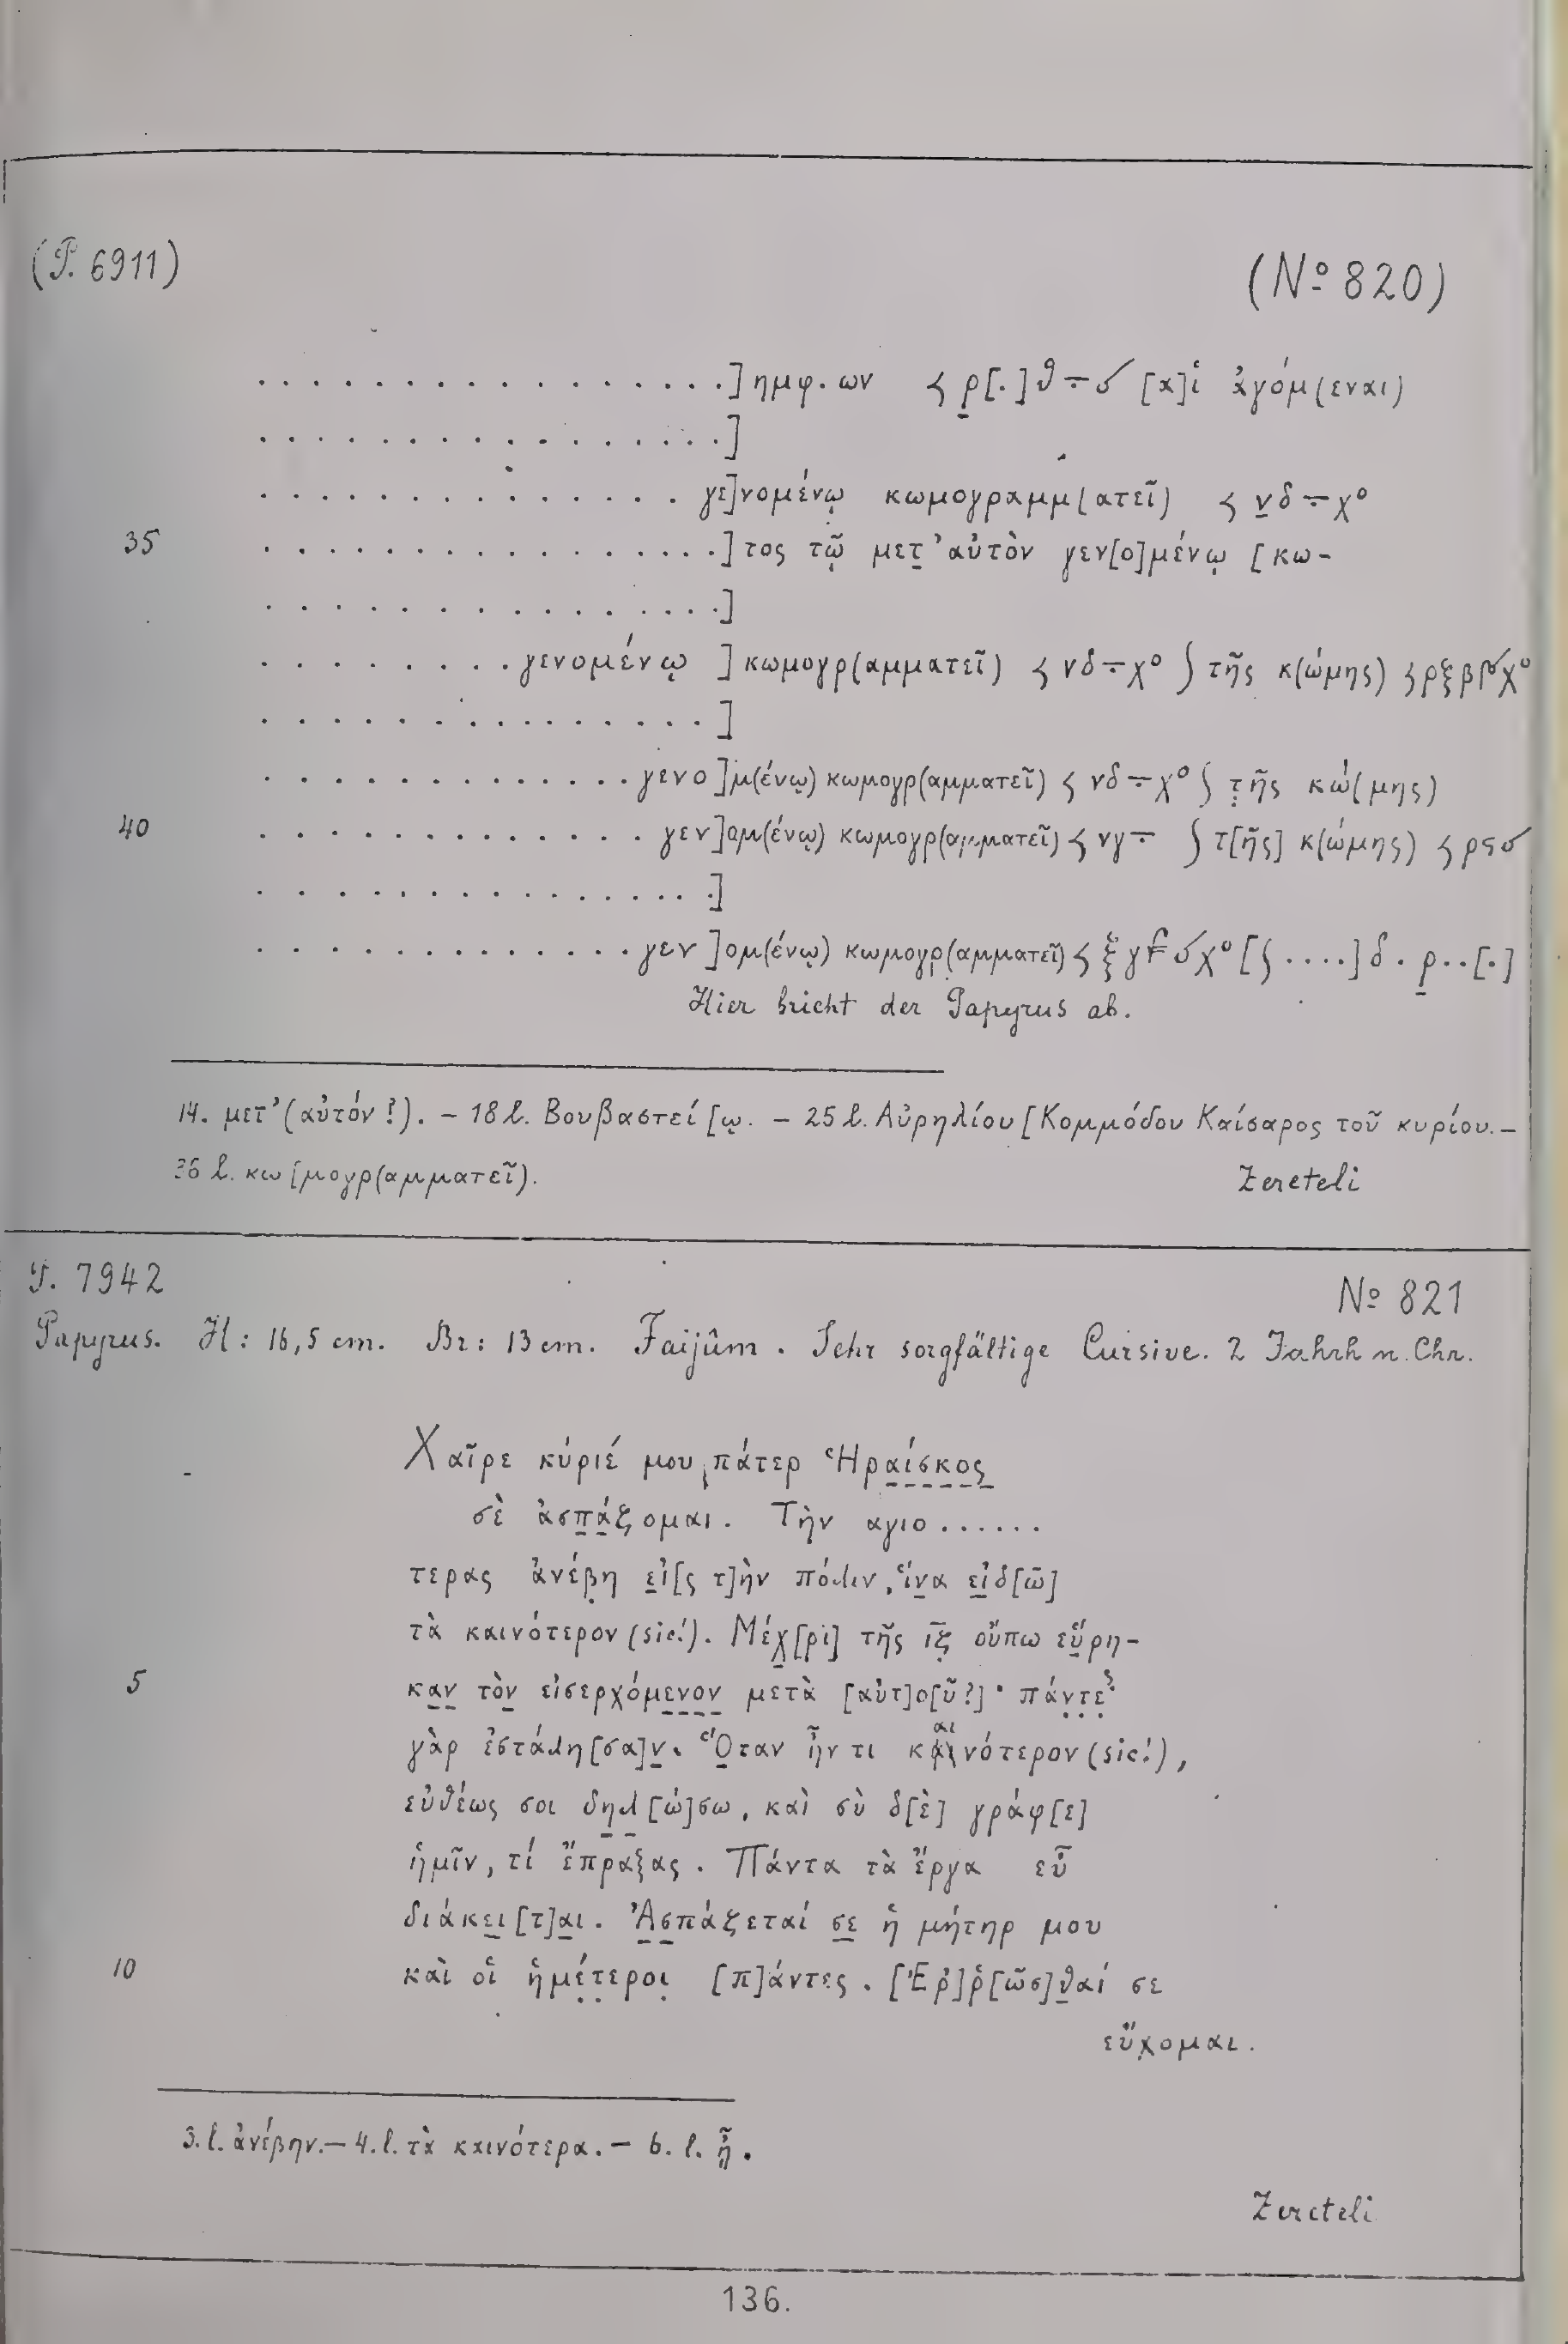 (P. 6911) (No 820)
. . . . . . . . . . . . . . . . . .]ημφ. ων ρ[.]θ [α]ἱ ἀγόμ(εναι)
. . . . . . . . . . . . . . . . . .]
. . . . . . . . . . . . . . . γε]νομένῳ κωμογραμμ(ατεῖ) νδ χο
35 . . . . . . . . . . . . . . . . . .]τος τῷ μετ’ αὐτὸν γεν[ο]μένῳ [κω-
. . . . . . . . . . . . . . . . .]
. . . . . . . . . γενομένῳ ]κωμογρ(αμματεῖ) νδ χο ∫ τῆς κ(ώμης) ρξβ χο
. . . . . . . . . . . . . . . . .]
. . . . . . . . . . . . . . γενο]μ(ένῳ) κωμογρ(αμματεῖ) νδ χο ∫ τῆς κώ(μης)
40 . . . . . . . . . . . . . . γεν]ομ(ένῳ) κωμογρ(αμματεῖ) νγ ∫ τ[ῆς] κ(ώμης) ρϛ
. . . . . . . . . . . . . . . .]
. . . . . . . . . . . . . . γεν]ομ(ένῳ) κωμογρ(αμματεῖ) ξγ χο [∫ ....]δ . ρ..[.]
Hier bricht der Papyrus ab.
14. μετ’(αὐτόν?). – 18 l. Βουβαστεί[ῳ. – 25 l. Αὐρηλίου [Κομμόδου Καίσαρος τοῦ κυρίου. –
36 l. κω[μογρ(αμματεῖ). Zereteli
P. 7942 No 821
Papyrus. H: 16,5 cm. Br: 13 cm. Faijûm. Sehr sorgfältige Cursive. 2 Jahrh n. Chr.
Χαῖρε κύριέ μου, πάτερ Ἡραίσκος
σὲ ἀσπάζομαι. Τὴν αγιο......
τερας ἀνέβη εἰ[ς τ]ὴν πόλιν, ἵνα εἰδ[ῶ]
τὰ καινότερον (sic!). Μέχ[ρι] τῆς ιζ οὔπω εὕρη-
5 καν τὸν εἰσερχόμενον μετὰ [αὐτ]ο[ῦ?]· πάντες
γὰρ ἐστάλη[σα]ν. Ὅταν ἦν τι καινότερον (sic!),
εὐθέως σοι δηλ[ώ]σω, καὶ σὺ δ[ὲ] γράφ[ε]
ἡμῖν, τί ἔπραξας. Πάντα τὰ ἔργα εὖ
διάκει[τ]αι. Ἀσπάζεταί σε ἡ μήτηρ μου
10 καὶ οἱ ἡμέτεροι [π]άντες. [Ἐρ]ῥ[ῶσ]θαί σε
εὔχομαι.
3. l. ἀνέβην. – 4. l. τὰ καινότερα. – 6. l. ᾖ.
Zereteli
136.